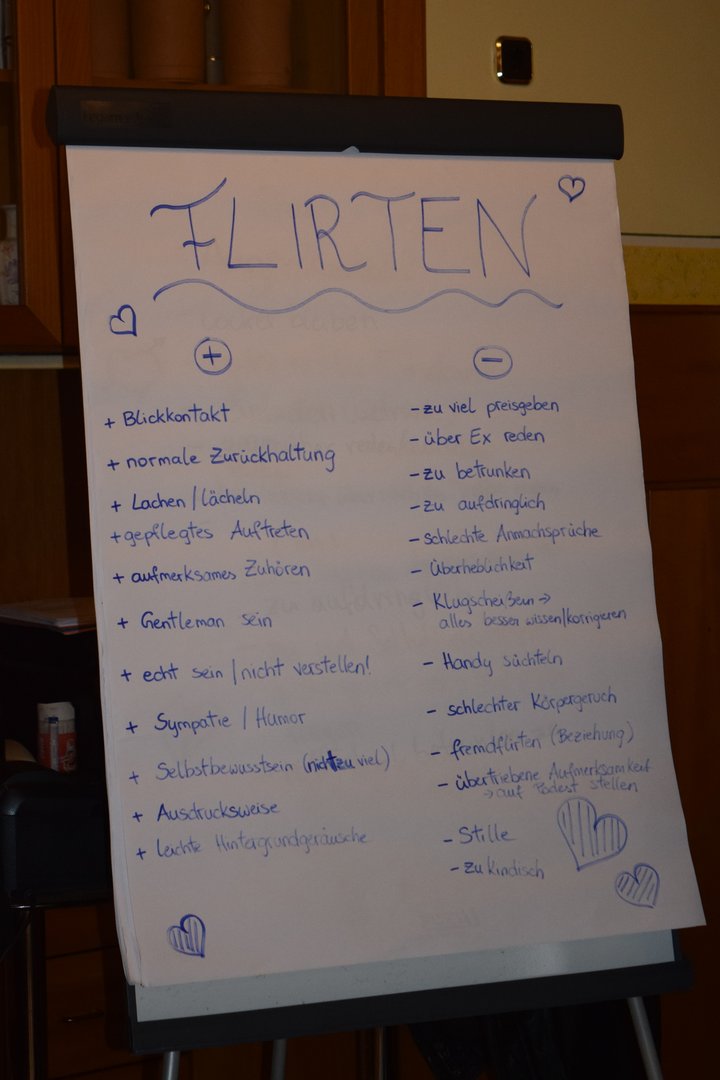 FLIRTEN
+
+ Blickkontakt
+ normale Zurückhaltung
+ Lachen / lächeln
+ gepflegtes Auftreten
+ aufmerksames Zuhören
+ Gentleman sein
+ echt sein / nicht verstellen!
+ Sympatie / Humor
+ Selbstbewusstsein (nicht zu viel)
+ Ausdrucksweise
+ leichte Hintergrundgeräusche
-
- zu viel preisgeben
- über Ex reden
- zu betrunken
- zu aufdringlich
- schlechte Anmachsprüche
- Überheblichkeit
- Klugscheißern →
alles besser wissen/korrigieren
- Handy süchteln
- schlechter Körpergeruch
- fremdflirten (Beziehung)
- übertriebene Aufmerksamkeit
→ auf Podest stellen
- Stille
- zu kindisch